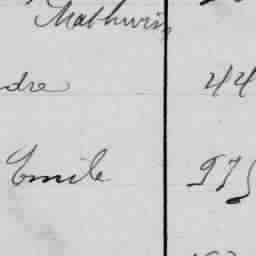 Mathurin
dre 44
Emile 975